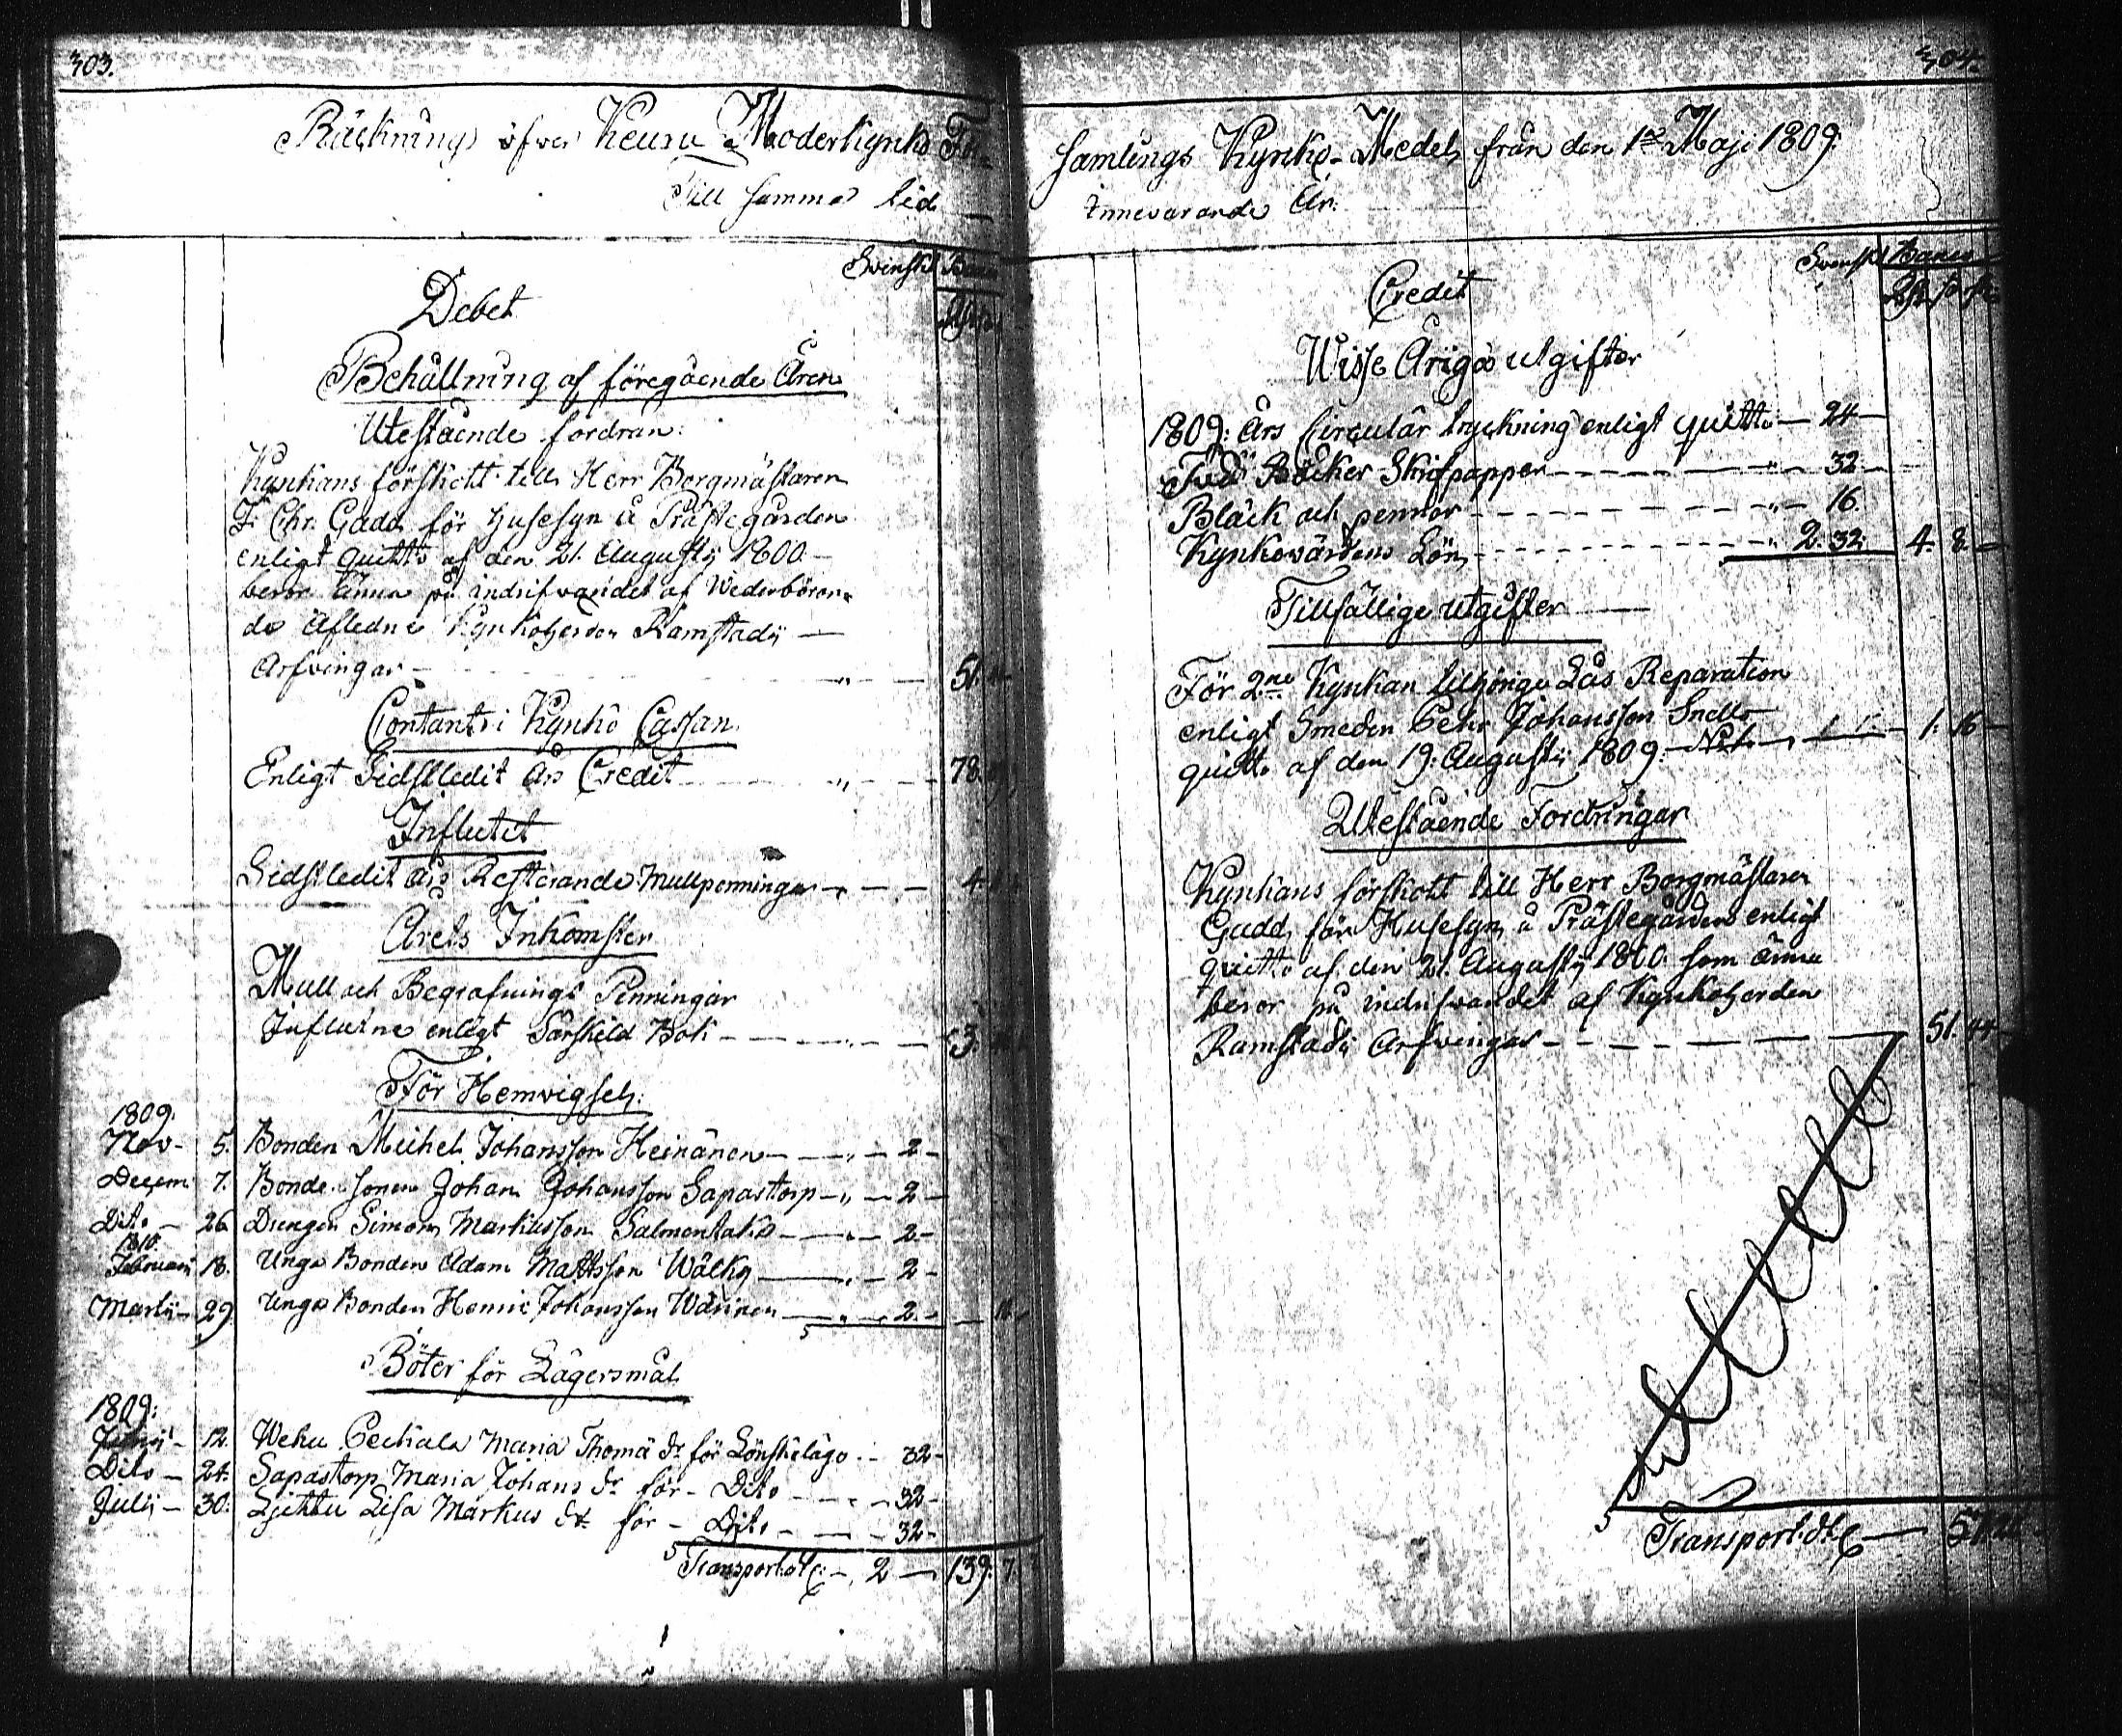 303.
Räckning öfver Keuru Moderkyrko För-
Till samma tid
Svenskt Banco
Debet
Behållning af föregående Åren
Utestående fordran:
Kyrkans förskott till Herr Borgmästaren
Chr. Gadd för Husesyn å Prästegården
enligt quitto af den 21. Augustij 1800 —
beror ännu på indrifvandet af Wederböran-
de Afledne Kyrkoherden Ramstadij —
Arfvingar — " — 51.
Contant i Kyrko Cassan
Enligt Sidstledit års Credit — " — 78.
Influtit
Sidstledit års Resterande Mullpenningar — " — 4.
Årets Inkomster
Mull och Begrafnings Penningar
Influtne enligt Särskild Bok — " — 3.
För Hemvigsel:
1809:
Nov - 5. Bonden Michel Johansson Heinänen — " — 2 -
Decem 7. Bonde sonen Johan Johansson Sapastorp — " — 2 -
Dito - 26 Drengen Simon Markusson Salmentaka — " — 2 -
1810.
Februari 18. Unge Bonden Adam Mattsson Wälky — " — 2 -
Martij - 29 Unge Bonden Henric Johansson — " — 2. — 16.
Böter för Lägersmål
1809:
12. Weku Maria Thomä dr för Lönskeläge — 32 -
Dito - 24. Sapastorp Maria Johans dr för - Dito - — 32 -
Julij - 30. Lisa Markus dr för - Dito - — 32 -
Transport. — 2 — 139. 7.
304.
samlings Kyrko-Medel från den 1sta Maji 1809.
Innevarande År.
Svenskt Banco
Credit
Wisse Åriga utgifter
1809: års Circulär tryckning enligt quitto — 24 —
Böcker Skrifpapper — " — 32
Bläck och pennor — " — 16.
Kyrkovärdens Lön — " 2. 32. 4. 8 —
Tillfällige utgifter —
För 2ne Kyrkan tilhöriga Lås Reparation
enligt Smeden Johansson Snells
quitto af den 19. Augustij 1809. — 1. 16 —
Utestående Fordringar
Kyrkans förskott till Herr Borgmästaren
Gadd för Husesyn å Prästegården enligt
quitto af den 21. Augustij 1800. som ännu
beror på indrifvandet af Kyrkoherden
Ramstadij Arfvingar — 51. 44
Transport. — 57.